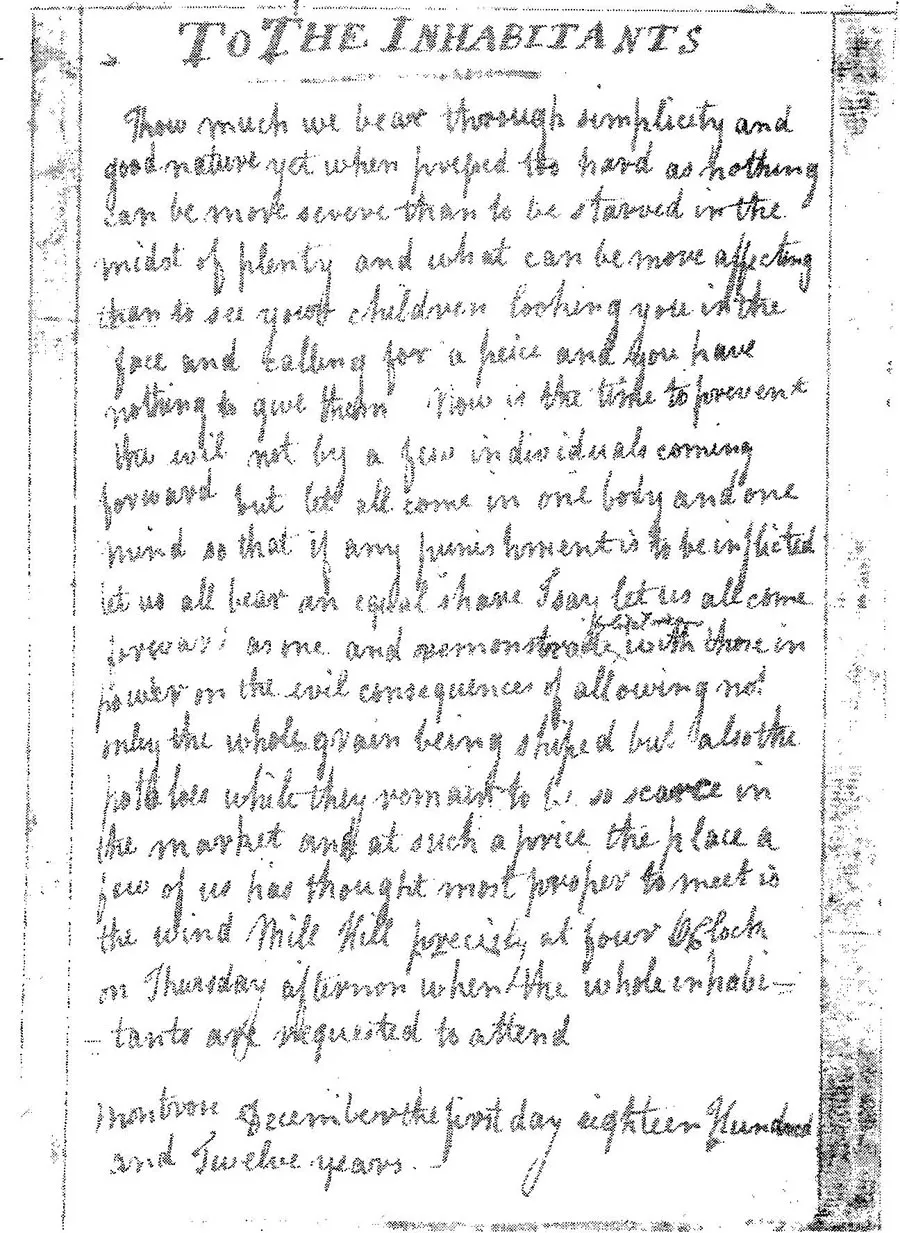 TO THE INHABITANTS
Thow much we bear thorough simplicity and
good nature yet when prefsed too hard as nothing
can be more severe than to be starved in the
midst of plenty and what can be more affecting
than to see your children looking you in the
face and calling for a peice and you have
nothing to give them Now is the time to prevent
the evil not by a few individuals coming
forward but let all come in one body and one
mind so that if any punishment is to be inflicted
let us all bear an equal share I say let us all come
forward as one and remonstrate with those in
power on the evil consequences of allowing not
only the whole grain being shiped but also the
potatoes while they remain to be so scarce in
the market and at such a price the place a
few of us has thought most proper to meet is
the wind Mill Hill precisely at four OClock
on Thursday afternon when the whole inhabi-
-tants are requested to attend
Montrose December the first day eighteen Hundred
and Twelve years